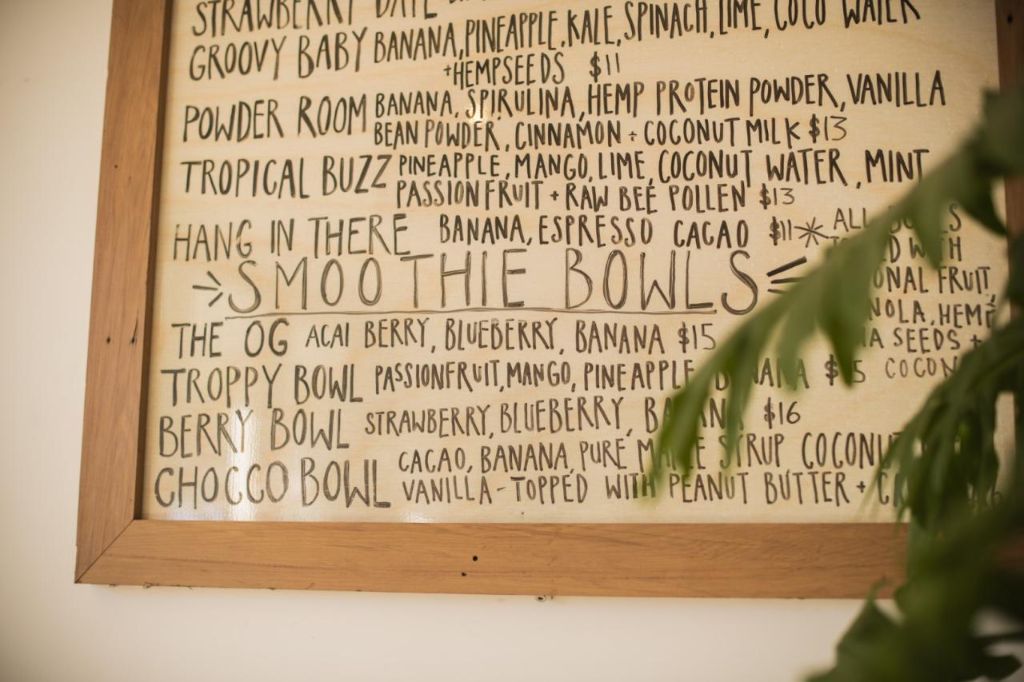 STRAWBERRY DATE
GROOVY BABY BANANA, PINEAPPLE, KALE, SPINACH, LIME, COCO WATER
+HEMPSEEDS $11
POWDER ROOM BANANA, SPIRULINA, HEMP PROTEIN POWDER, VANILLA
BEAN POWDER, CINNAMON + COCONUT MILK $13
TROPICAL BUZZ PINEAPPLE, MANGO, LIME, COCONUT WATER, MINT
PASSIONFRUIT + RAW BEE POLLEN $13
HANG IN THERE BANANA, ESPRESSO CACAO $11
SMOOTHIE BOWLS
THE OG ACAI BERRY, BLUEBERRY, BANANA $15
TROPPY BOWL PASSIONFRUIT, MANGO, PINEAPPLE
BERRY BOWL STRAWBERRY, BLUEBERRY, $16
CHOCCO BOWL CACAO, BANANA, PURE SYRUP COCONUT
VANILLA - TOPPED WITH PEANUT BUTTER +
*ALL
WITH
FRUIT,
SEEDS +